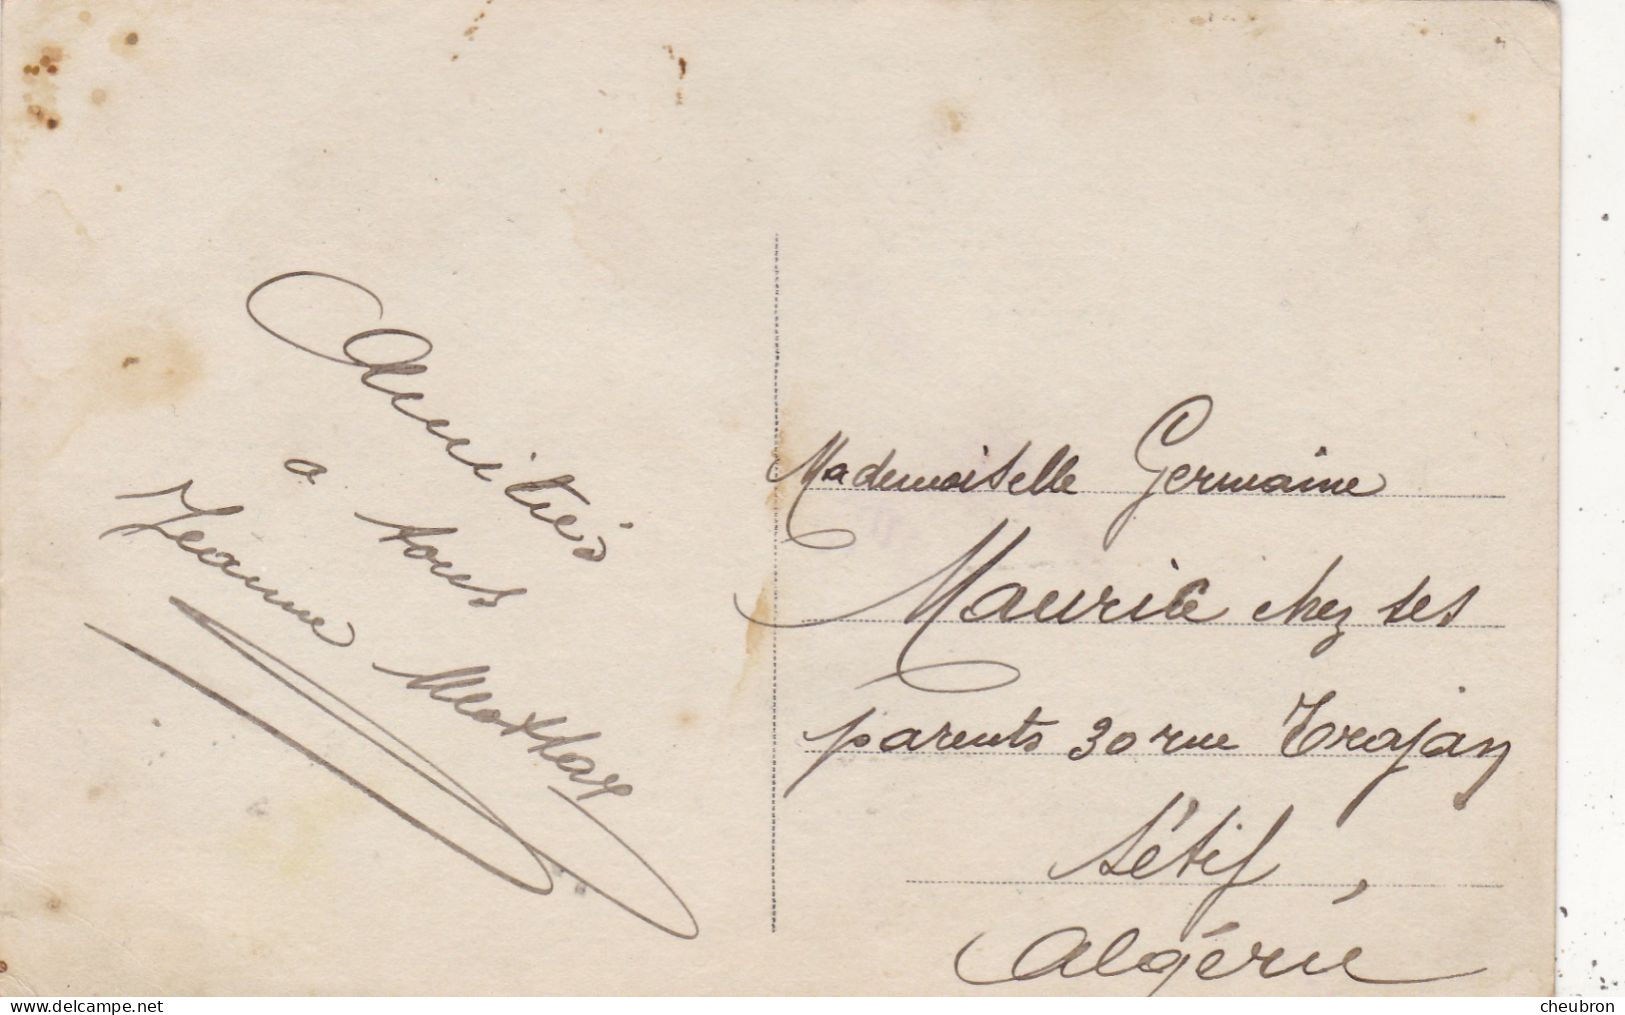 Amitiés
a
tous
Jeanne Matlay
Mademoiselle Germaine
Maurice chez ses
parents 30 rue Trajan
Sétif,
Algérie
cheubron.com